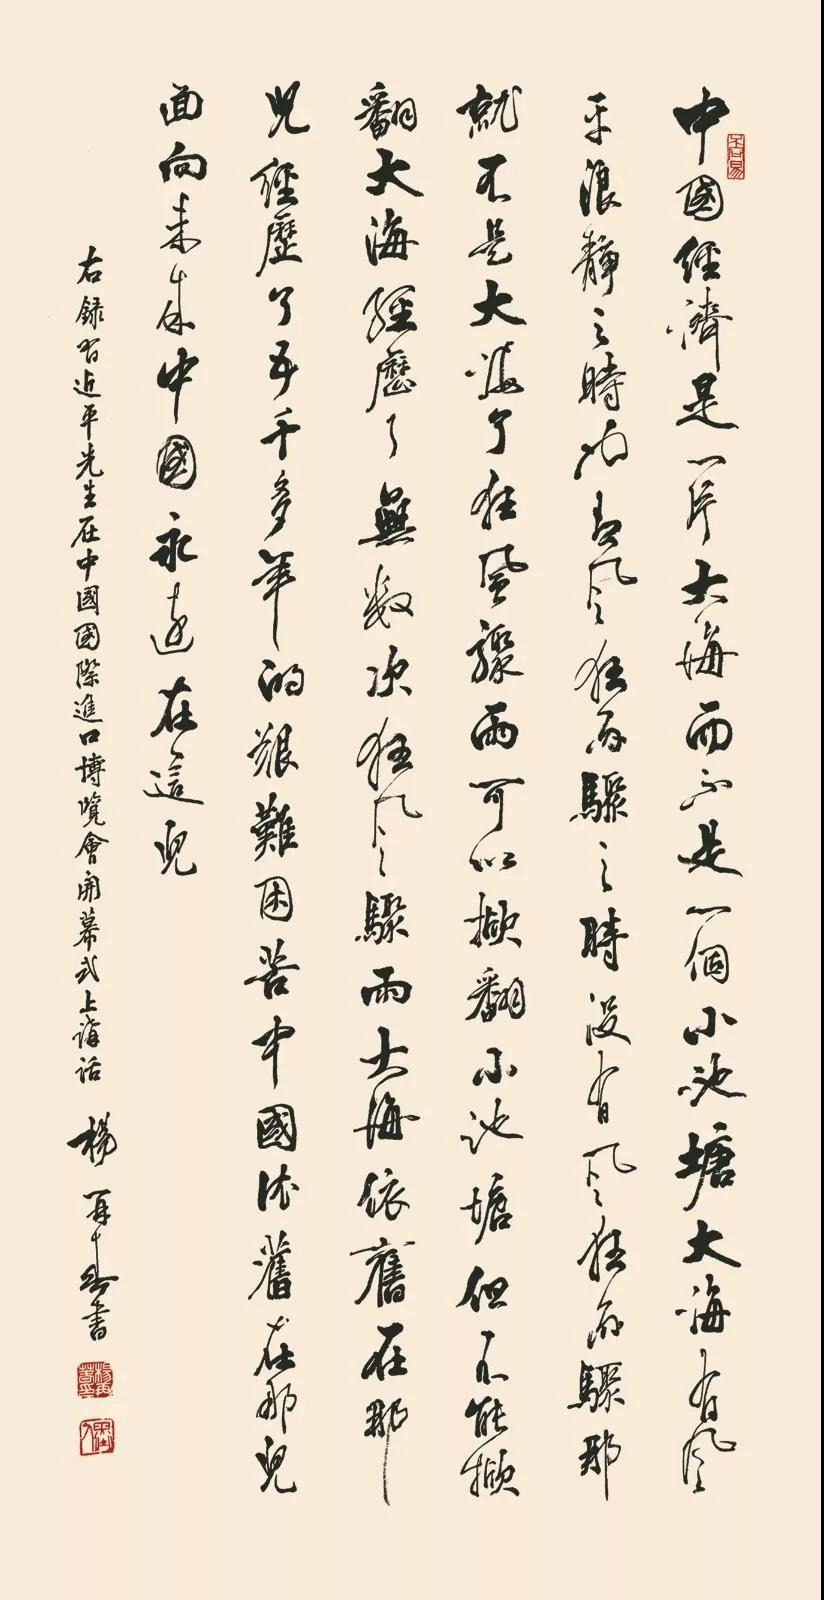 中國經濟是一片大海而不是一個小池塘大海有風
平浪靜之時也有風狂雨驟之時沒有風狂雨驟那
就不是大海了狂風驟雨可以掀翻小池塘但不能掀
翻大海經歷了無數次狂風驟雨大海依舊在那
兒經歷了五千多年的艱難困苦中國依舊在那兒
面向未來中國永遠在這兒
右錄習近平先生在中國國際進口博覽會開幕式上講話 楊再春書